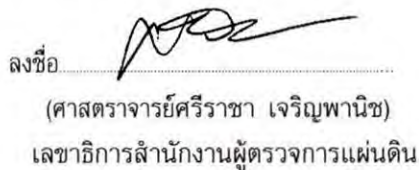 ลงชื่อ
(ศาสตราจารย์ศรีราชา เจริญพานิช)
เลขาธิการสำนักงานผู้ตรวจการแผ่นดิน